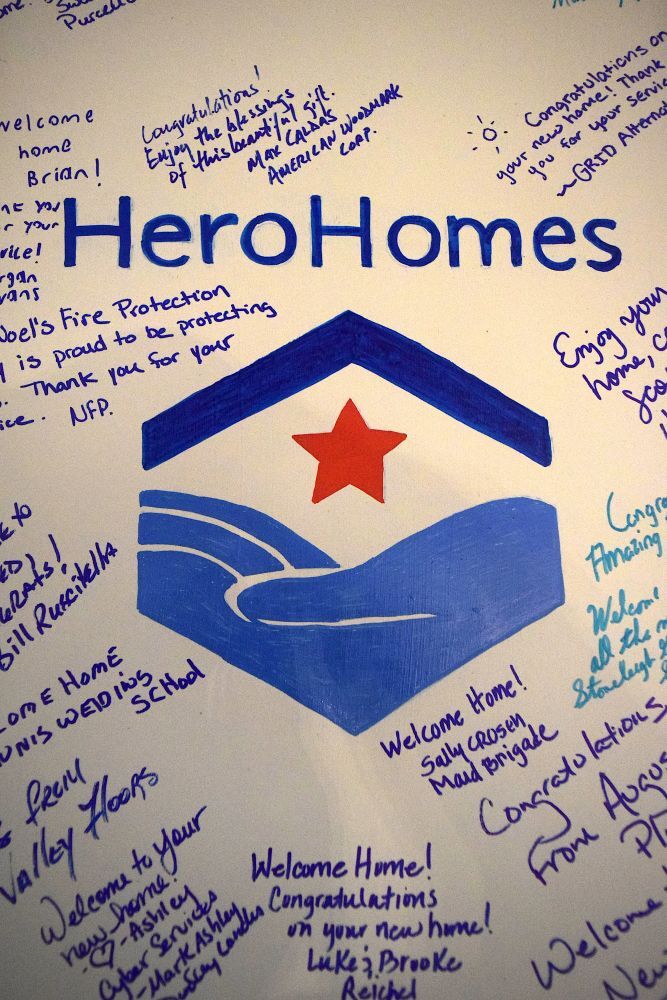 Purcell
welcome
home
Brian!
Congratulations!
Enjoy the blessings
of this beautiful gift.
Max Caldas
American Woodmark
Corp.
Congratulations on
your new home! Thank
you for your service
~GRID Alterna
HeroHomes
Noel's Fire Protection
is proud to be protecting
Thank you for your
NFP.
Enjoy your
home,
to
Bill
Home
Welding
School
from
Valley Floors
Congra
Amazing
Welcom
all the
Stoneleigh
Welcome Home!
Sally Crosen
Maid Brigade
Congratulations
From Augus
Welcome to your
new home!
♡-Ashley
Cyber Services
-Mark Ashley
Welcome Home!
Congratulations
on your new home!
Luke & Brooke
Reichel
Welcome
New